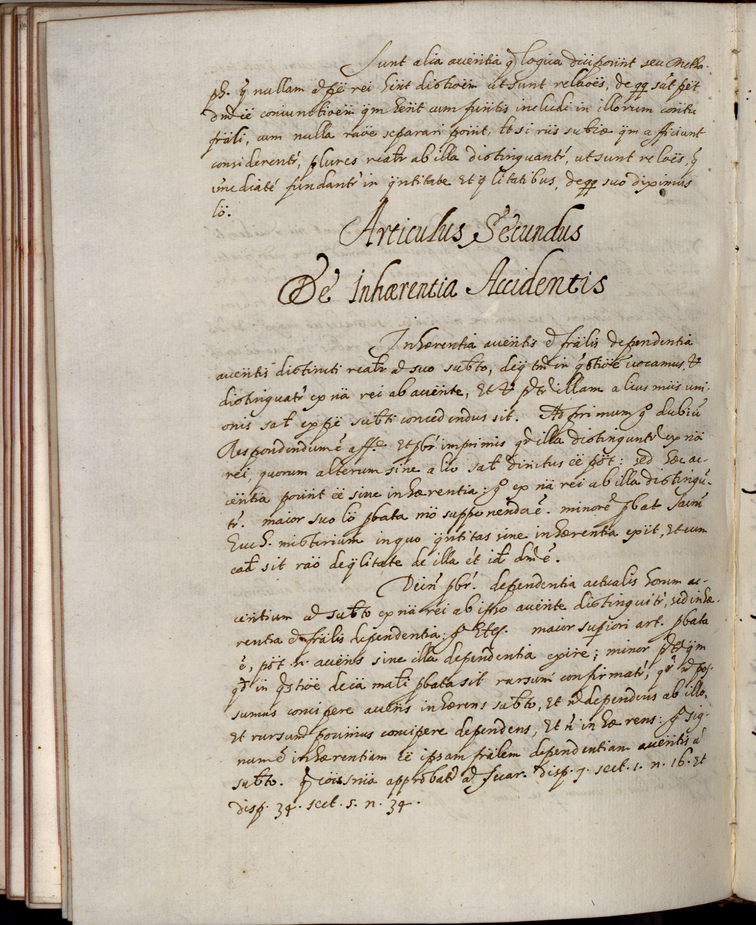 Sunt alia accētia q̄ logica dici poſſint seu Metha-
ph. q̄ nullam a pē rei hn̄t distioēm ut sunt relaōēs, de qq̄ sāt pōt
coniunctioēm qm̄ hēnt cum includi in illorum contu
frāli, cum nulla raōe separari poſſint, et si iis subtae qm̄ afficiunt
considerentr̄, plures realr̄ ab illa distinguantr̄, ut sunt relaōēs, q̄
im̄ediatē fundantr̄ in qn̄titate et qlitatibus, de qq̄ suo diximus
lō.
Articulus Secundus
De Inhærentia Accidentis
Inhærentia accēntis ē frālis dependentia
accēntis distincti realr̄ a suo subto, de q̄ tm̄ in q̄stioē vocamus,
distinguatr̄ ex nā rei ab accēnte, et illam alius mūs uni-
onis sāt ex pē subti concedendus sit. Ad primum g̊ dubiū
Respondendum ē aff.ē et pbr̄ imprimis qr̄ illa distinguntr̄ ex nā
rei, quorum alterum sine alio sāt divinitus ēē pōt: sed hæc ac-
cēntia poſſunt ēē sine inhærentia: g̊ ex nā rei ab illa distingū-
tr̄. maior suo lō pbata mō supponenda ē. minorē pbat Sacrm̄
Euch. misterium in quo qn̄titas sine inhærentia exit, et cum
eād sit raō de qlitate de illa ēt id dm̄ ē.
Dein̄ pbr̄. dependentia actualis horum ac-
cēntium a subto ex nā rei ab ipso accēnte distinguitr̄, sed inhæ-
rentia ē frālis dependentia: g̊ maior superiori art. pbata
ē, pōt n. accēns sine illa dependentia exire; minor
qd̄ in q̄stioē de cā mali pbata sit rursum confirmatr̄, qr̄ n̄ pos-
sumus concipere accēns inhærens subto, et n̄ dependens ab illo,
et rursum poſſimus concipere dependens, et n̄ inhærens: g̊ sig-
num ē inhærentiam ēē ipsam frālem dependentiam accēntis a
subto. cōis snīa approbatr̄ a Suar. disp. 7. sect. 1. n. 16. et
disp. 34. sect. 5. n. 34.